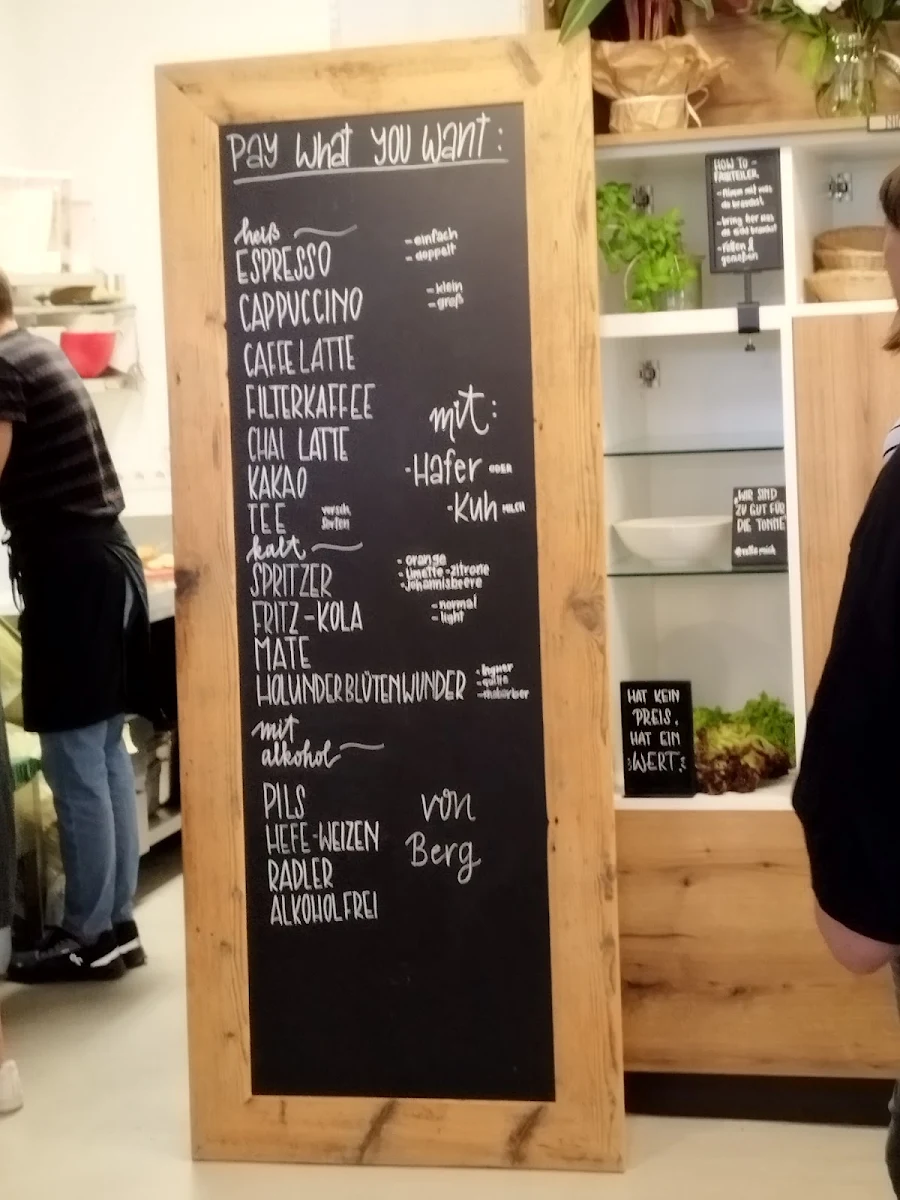 PAY What YOU Want:
heiß
ESPRESSO
- einfach
- doppelt
CAPPUCCINO
- klein
- groß
CAFFE LATTE
FILTERKAFFEE
CHAI LATTE
KAKAO
mit:
- Hafer ODER
- Kuh MILCH
TEE
versch.
Sorten
kalt
SPRITZER
- orange
- Limette-zitrone
- Johannisbeere
FRITZ-KOLA
- normal
- light
MATE
HOLUNDERBLÜTENWUNDER
- Ingwer
- rhabarber
mit
alkohol
PILS
HEFE-WEIZEN
RADLER
ALKOHOLFREI
von
Berg
HOW TO -
FAIRTEILER
- Nimm mit was
du brauchst
- bring her was
du nicht brauchst
genießen
„WIR SIND
ZU GUT FÜR
DIE TONNE"
HAT KEIN
PREIS,
HAT EIN
WERT